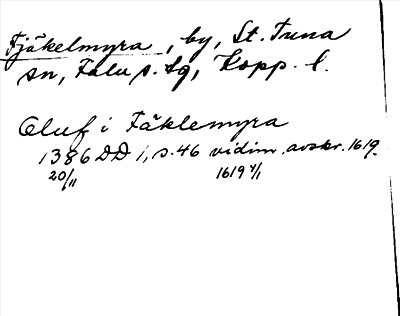 Fjäkelmyra, by, St. Tuna
sn, Falu s. tg, Kopp. l.
Oluf i Fäklemyra
1386 DD 1, s. 46 vidim. avskr. 1619
20/11 1619 4/1